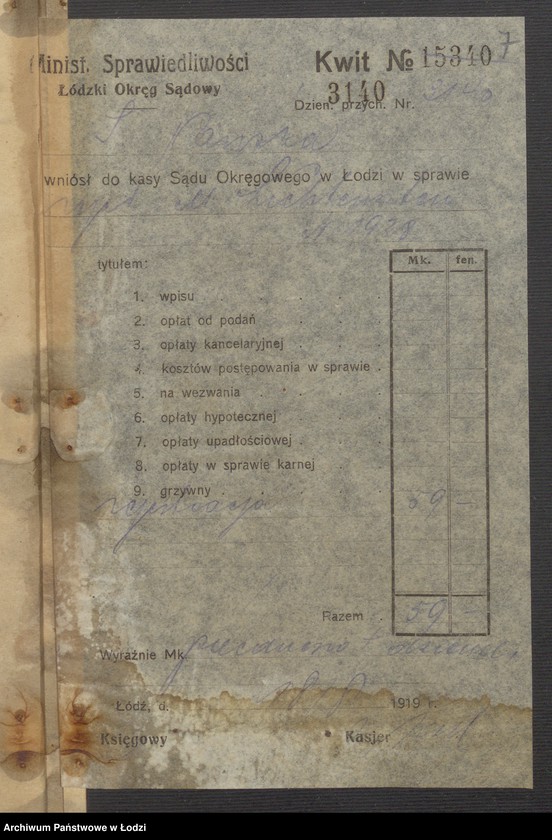 Minist. Sprawiedliwości
Łódzki Okręg Sądowy
Kwit № 15340
7
3140
Dzien. przych. Nr. 3140
wniósł do kasy Sądu Okręgowego w Łodzi w sprawie
tytułem:
Mk. fen.
1. wpisu
2. opłat od podań
3. opłaty kancelaryjnej
4. kosztów postępowania w sprawie
5. na wezwania
6. opłaty hypotecznej
7. opłaty upadłościowej
8. opłaty w sprawie karnej
9. grzywny
rejestracja 59 —
Razem 59 —
Wyraźnie Mk. pięćdziesiąt
Łódź, d. 1919 r.
Księgowy Kasjer
Archiwum Państwowe w Łodzi